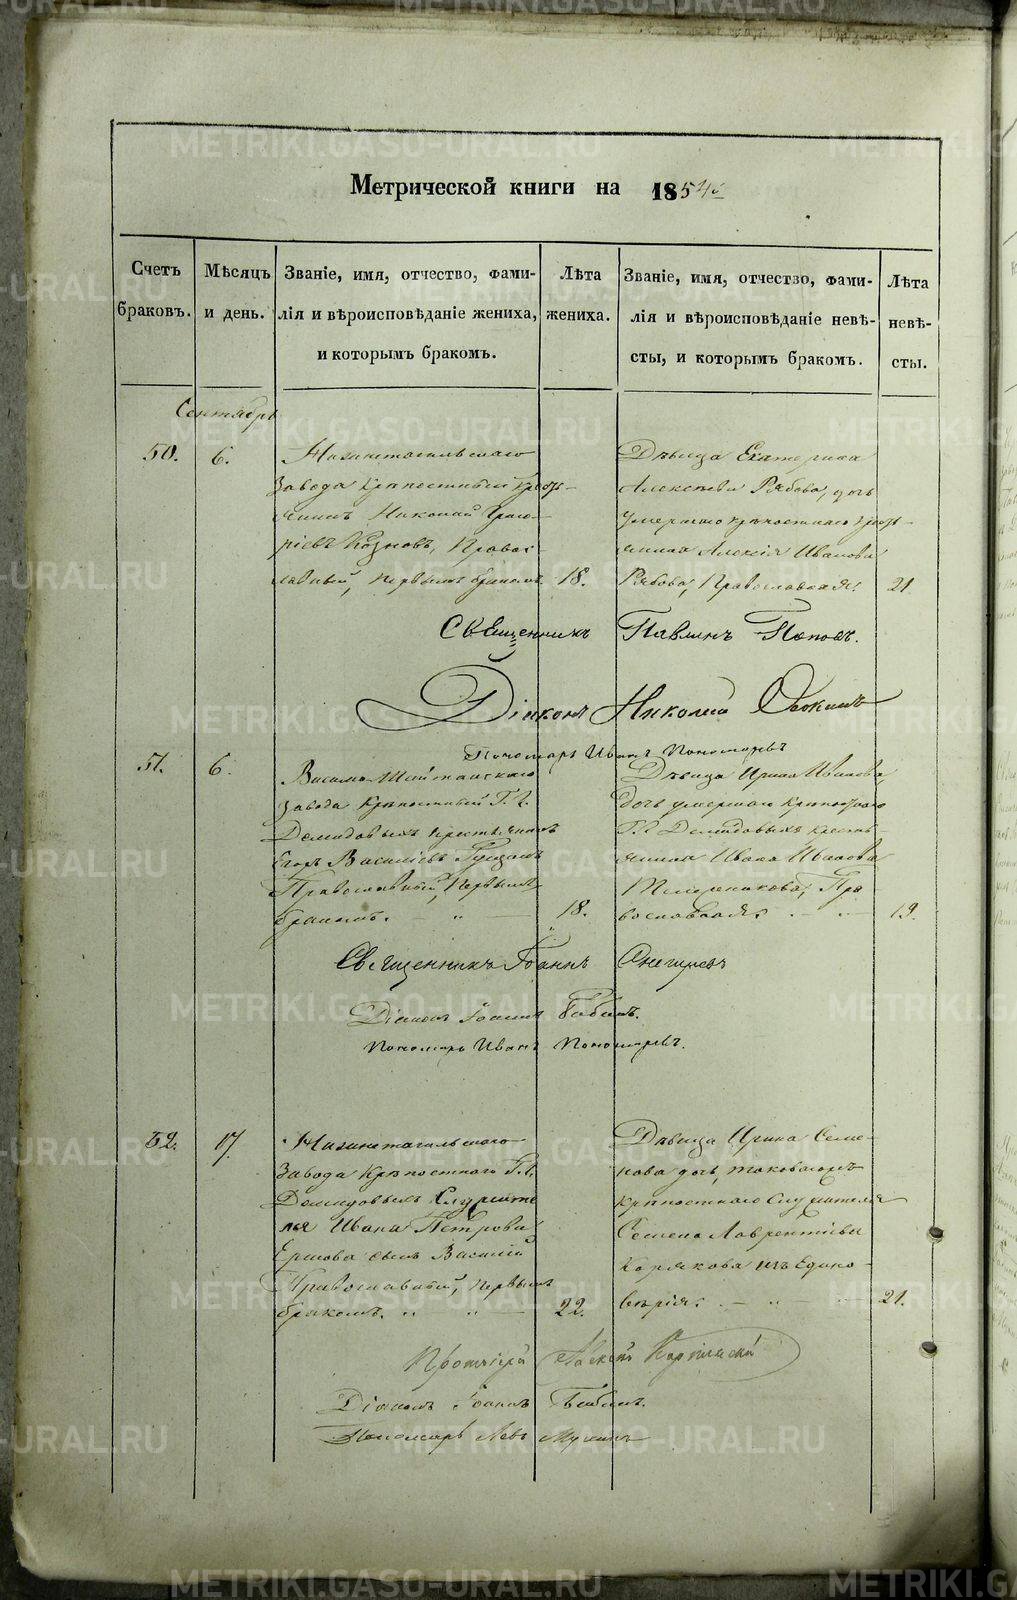 Метрической книги на 1854й
Счетъ браковъ.
Мѣсяцъ и день.
Званіе, имя, отчество, фамилія и вѣроисповѣданіе жениха, и которымъ бракомъ.
Лѣта жениха.
Званіе, имя, отчество, фамилія и вѣроисповѣданіе невѣсты, и которымъ бракомъ.
Лѣта невѣсты.
Сентябрь
50.
6.
Нижнетагильскаго
Завода Крѣпостный крестья-
янинъ Николай Григо-
рьевъ Православ-
лавный, первымъ бракомъ
18.
Дѣвица Екатерина
Алексѣева Рябова, дочь
умершаго крѣпостнаго кресть-
янина Алексія Иванова
Рябова, Православная.
21
Священникъ Павлинъ Поповъ.
Діаконъ Николай
Пономарь Иванъ Пономаревъ
51.
6.
Висимо-Шайтанскаго
Завода Крѣпостный Г.г.
Демидовыхъ крестьянинъ
Егоръ Василіевъ
Православный, первымъ
бракомъ.
18.
Дѣвица Ирина Иванова,
дочь умершаго крѣпостнаго
Г.г Демидовыхъ кресть-
янина Ивана Иванова
Пра
вославная.
19.
Священникъ Іоаннъ
Діаконъ Іоаннъ Бабинъ.
Пономарь Иванъ Пономаревъ.
52.
17.
Нижнетагильскаго
Завода Крѣпостнаго Г.г.
Демидовыхъ Служите
ля Ивана Петрова
Ершова сынъ Василій
Православный, первымъ
бракомъ.
22.
Дѣвица Ирина Семе-
нова дочь таковагожъ
крѣпостнаго Служителя
Семена Лаврентіева
Корякова изъ Едино-
вѣрія.
21.
Протоіерей Алексѣй
Діаконъ Іоаннъ Бабинъ.
Пономарь Левъ Мухинъ
METRIKI.GASO-URAL.RU